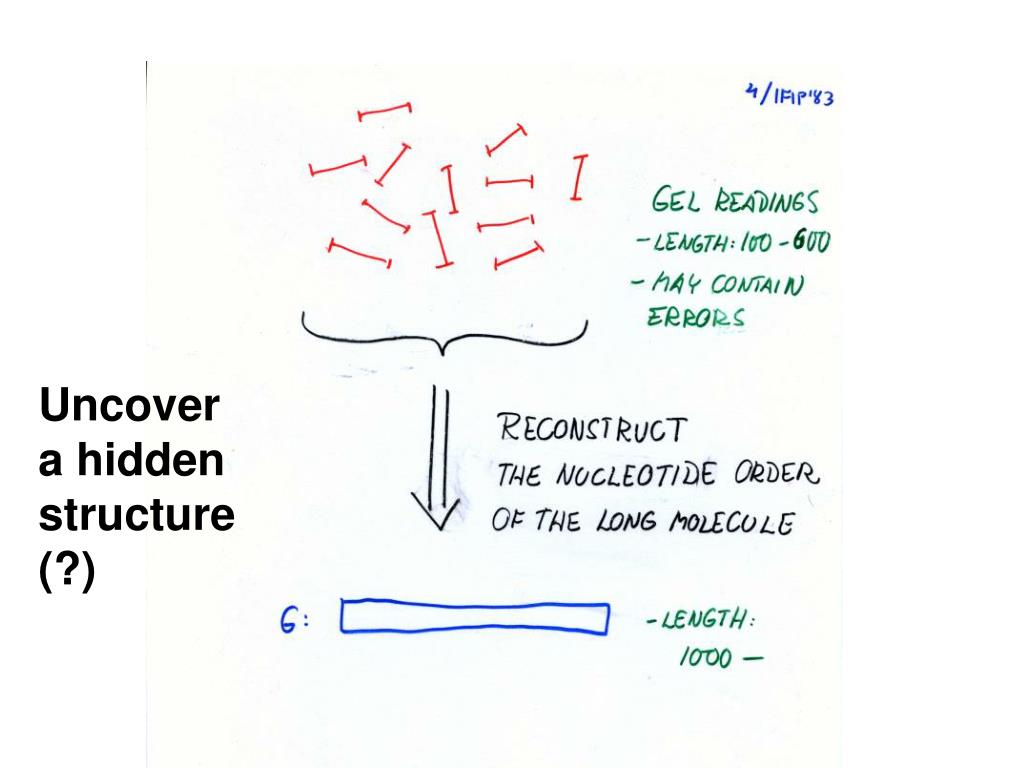 4/IFIP'83
GEL READINGS
- LENGTH: 100 - 600
- MAY CONTAIN
ERRORS
Uncover
a hidden
structure
(?)
RECONSTRUCT
THE NUCLEOTIDE ORDER
OF THE LONG MOLECULE
G:
- LENGTH:
1000 -